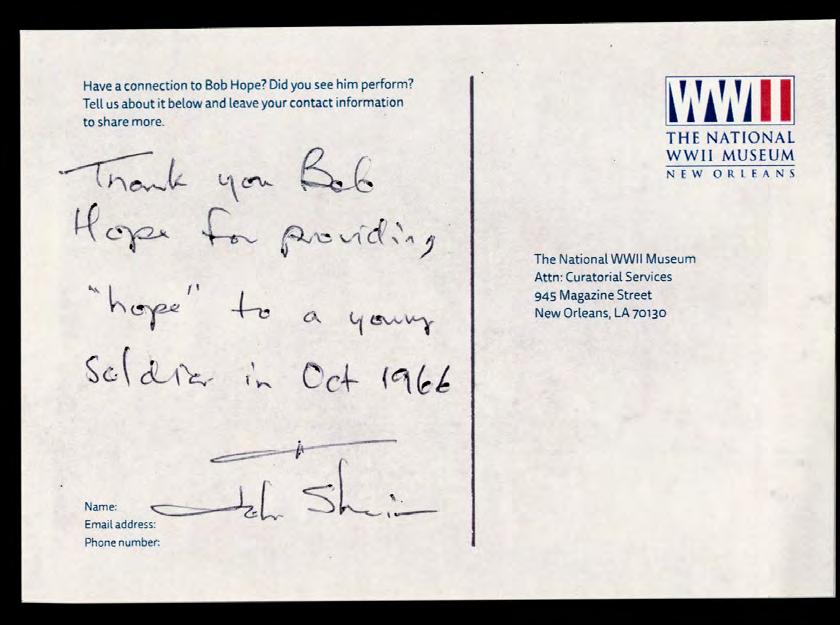 Have a connection to Bob Hope? Did you see him perform?
Tell us about it below and leave your contact information
to share more.
Thank you Bob
Hope for providing
"hope" to a young
Soldier in Oct 1966
Name: John
Email address:
Phone number:
WWII
THE NATIONAL
WWII MUSEUM
NEW ORLEANS
The National WWII Museum
Attn: Curatorial Services
945 Magazine Street
New Orleans, LA 70130